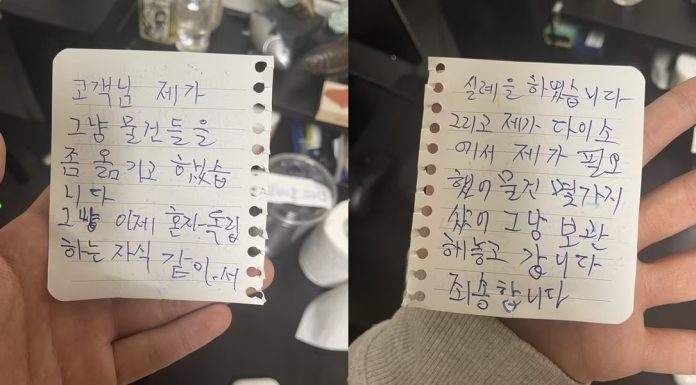 고객님 제가
그냥 물건들을
좀 옮기고 했었습
니다
그냥 이제 혼자 독립
하는 자식 같아서
실례을 하였습니다
그리고 제가 다이소
에서 제가 필요
했이 물건 몇가지
샀이 그냥 보관
해놓고 갑니다
죄송합니다